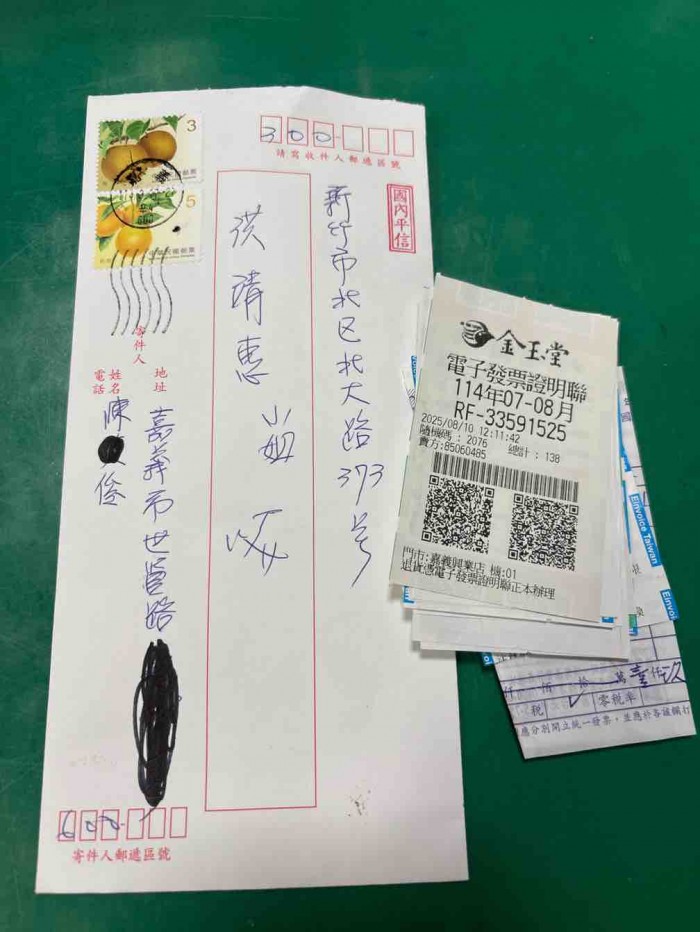 3
5
中華民國郵票
300
請寫收件人郵遞區號
國內平信
新竹市北区北大路373号
洪靖惠 小姐 收
寄件人
地址
嘉義市世賢路
姓名
電話
陳 俊
600
寄件人郵遞區號
金玉堂
電子發票證明聯
114年07-08月
RF-33591525
2025/08/10 12:11:42
隨機碼：2076 總計：138
賣方:85060485
門市:嘉義興業店 機:01
退貨憑電子發票證明聯正本辦理
Einvoice Taiwan
Einvoice
仟 佰 拾 萬 壹 仟 玖
稅 零稅率
應分別開立統一發票，並應於各該欄打